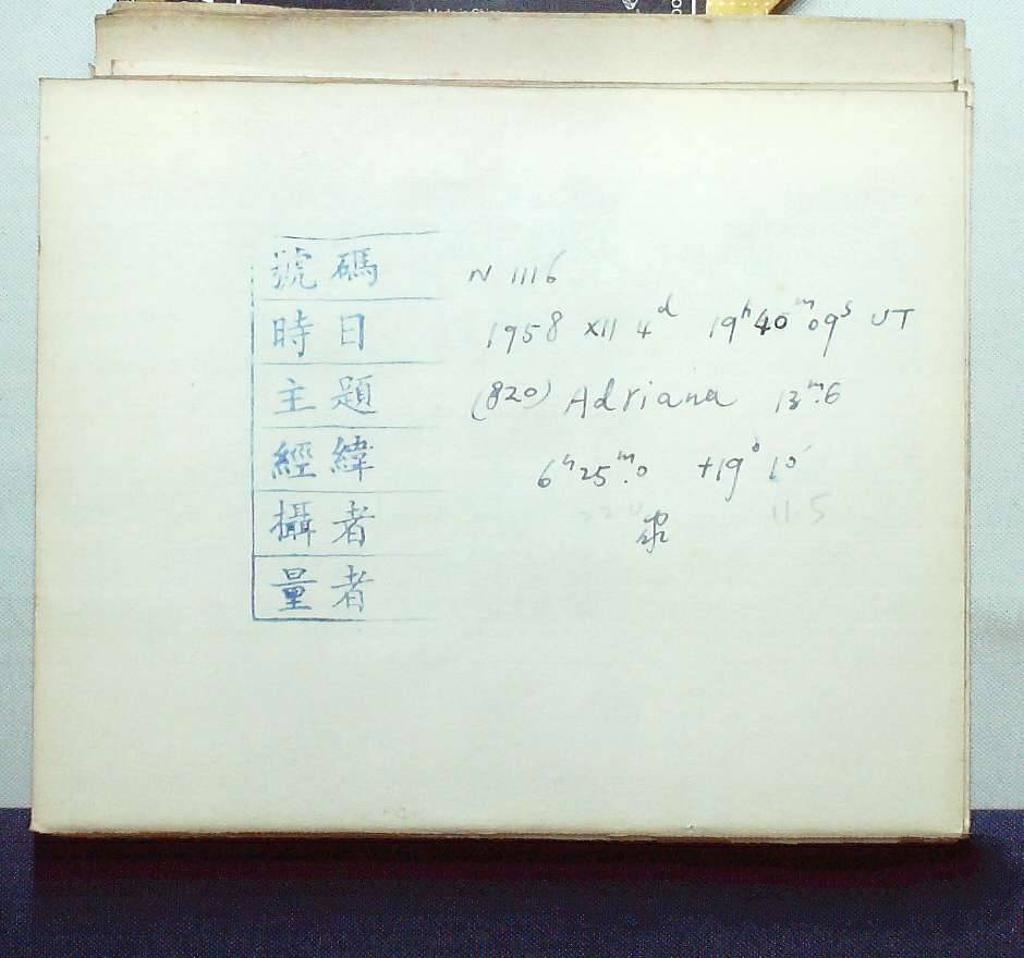 號碼 N 1116
時日 1958 XII 4ᵈ 19ʰ40ᵐ09ˢ UT
主題 (820) Adriana 13ᵐ.6
經緯 6ʰ25ᵐ.0 +19°10′
11.5
攝者
量者